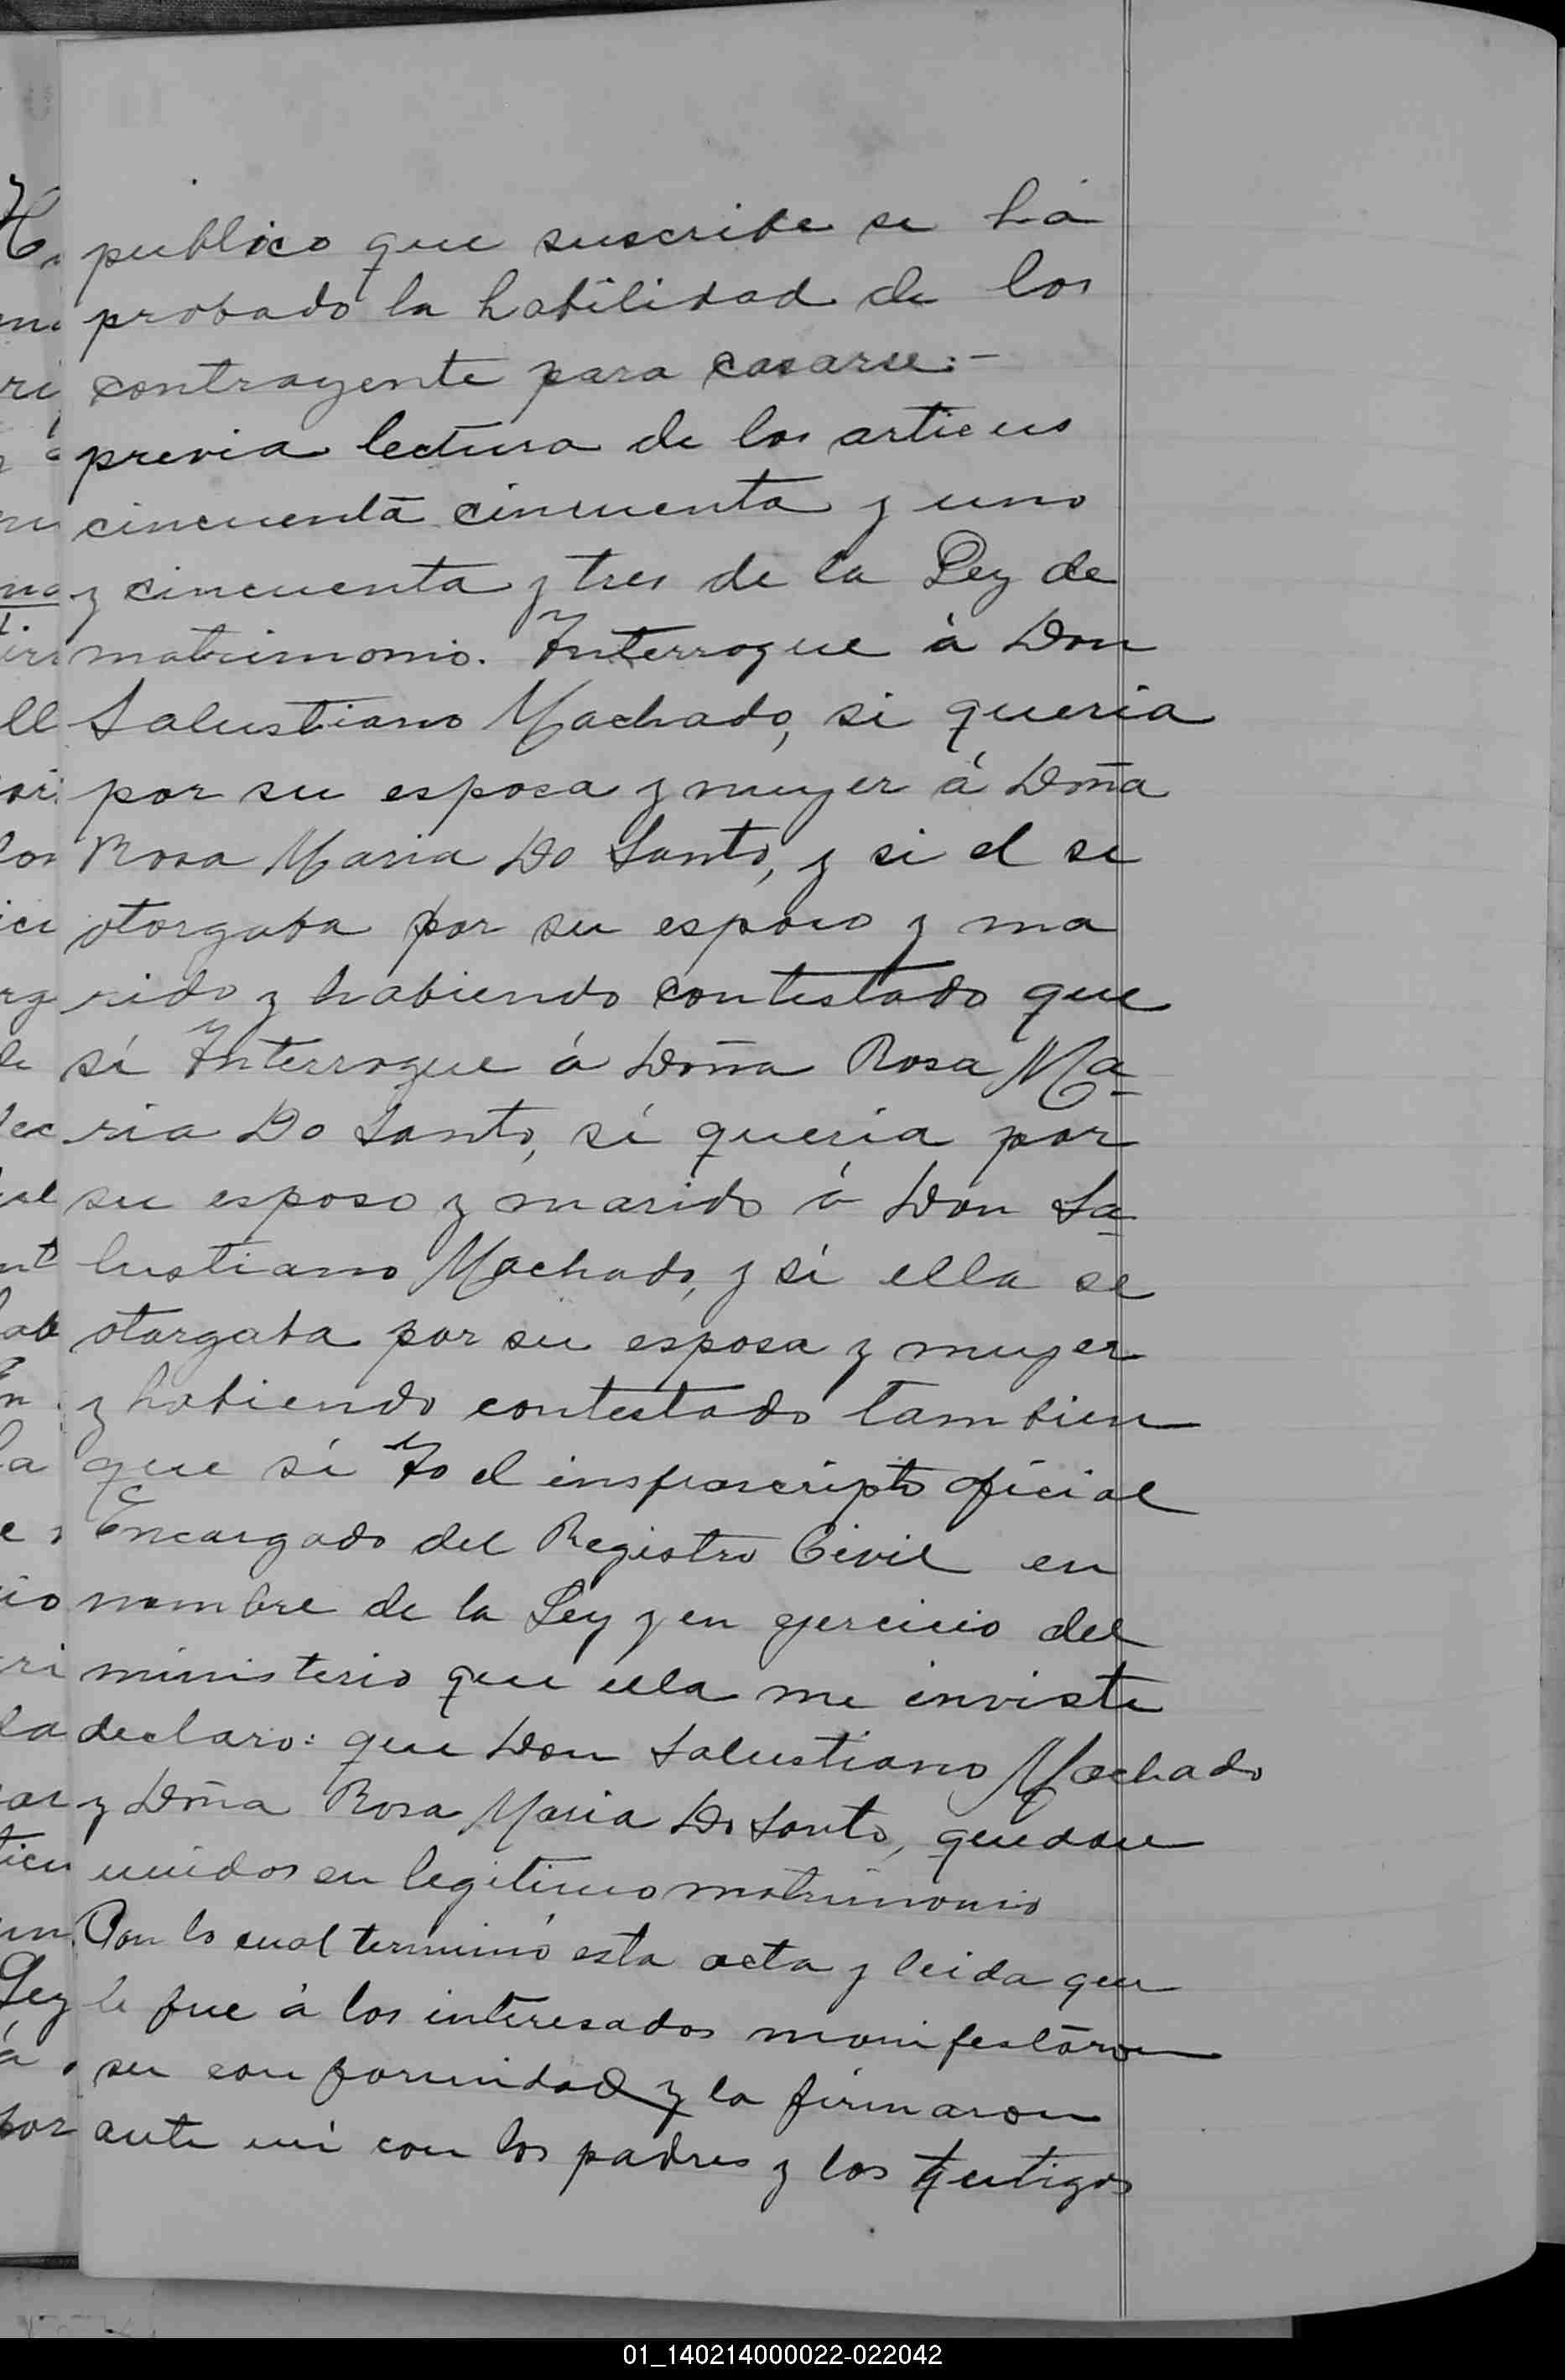 publico que suscribe se há
probado la habilidad de los
contrayente para casarse.-
previa lectura de los articus
cincuenta cincuenta y uno
y cincuenta y tres de la Ley de
matrimonio. Interrogue á Don
Salustiano Machado, si queria
por su esposa y muyer á Doña
Rosa Maria Do Santo, y si el se
otorgaba por su esposo y ma
rido y habiendo contestado que
sí Interrogue á Doña Rosa Ma-
ria Do Santo, sí queria por
su esposo y marido á Don Sa-
lustiano Machado, y sí ella se
otorgaba por su esposa y mujer
y habiendo contestado tambien
que sí Yo el insfrascripto oficial
Encargado del Registro Civil en
nombre de la Ley y en ejercicio del
ministerio que ella me inviste
declaro: que Don Salustiano Machado
y Doña Rosa Maria Do Santo, quedan
unidos en legitimo matrimonio
Con lo cual terminó esta acta y leida que
le fue á los interesados manifestaron
su conformidad y la firmaron
ante mi con los padres y los testigos
01_140214000022-022042